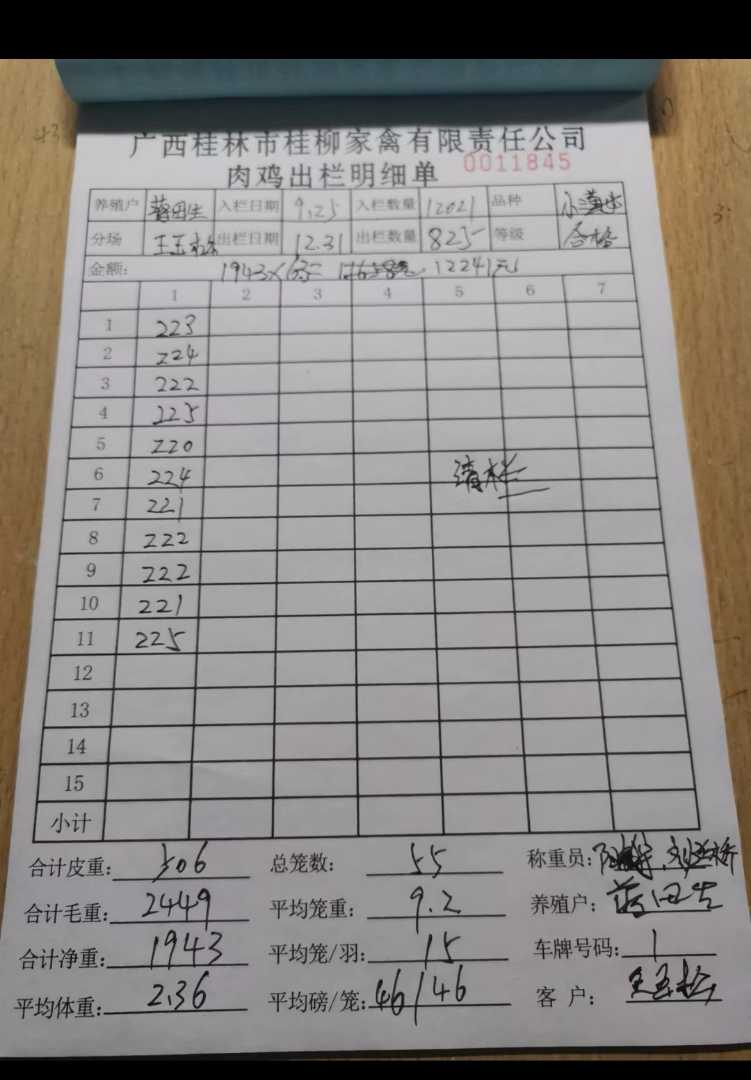 广西桂林市桂柳家禽有限责任公司
肉鸡出栏明细单 0011845
养殖户 蒋田生 入栏日期 9.25 入栏数量 12021 品种
分场 王玉松 出栏日期 12.31 出栏数量 825 等级 合格
金额: 1943× 12241元
1 2 3 4 5 6 7
1 223
2 224
3 222
4 225
5 220
6 224
清栏
7 221
8 222
9 222
10 221
11 225
12
13
14
15
小计
合计皮重: 506 总笼数: 55 称重员:
合计毛重: 2449 平均笼重: 9.2 养殖户: 蒋田生
合计净重: 1943 平均笼/羽: 15 车牌号码: 1
平均体重: 2.36 平均磅/笼: 46/46 客 户: 王玉松